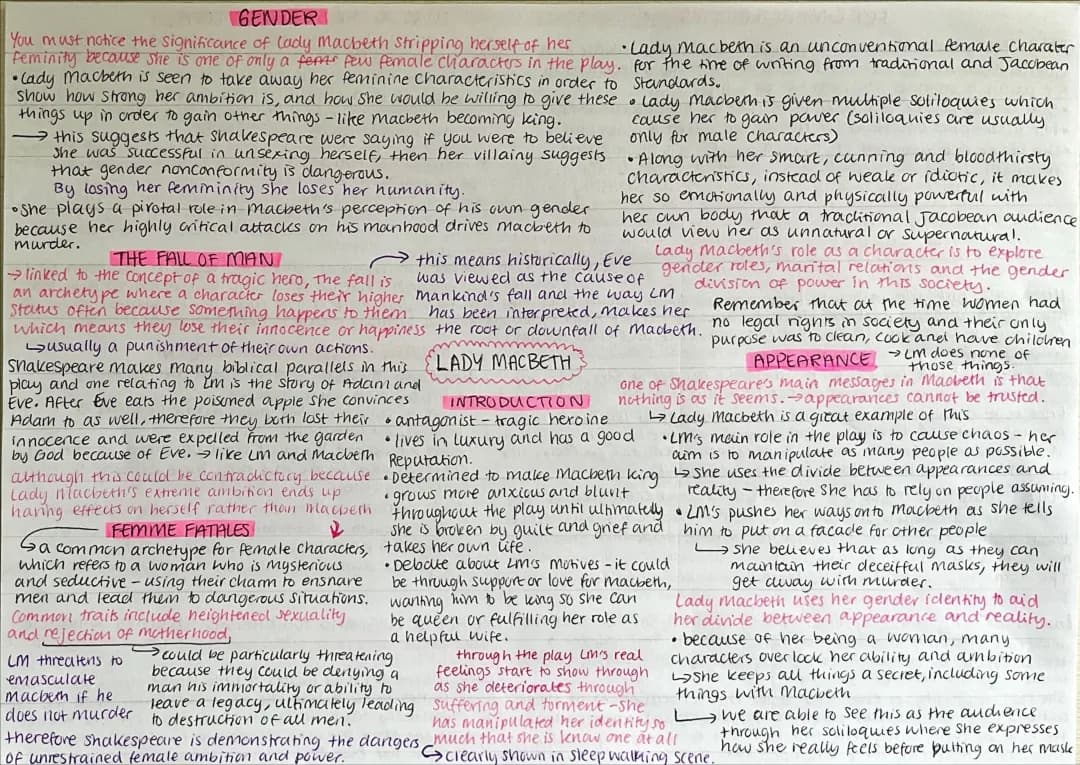 GENDER
You must notice the significance of Lady Macbeth stripping herself of her
feminity because she is one of only a few female characters in the play.
• Lady Macbeth is seen to take away her feminine characteristics in order to
show how strong her ambition is, and how she would be willing to give these
things up in order to gain other things - like Macbeth becoming king.
→ this suggests that Shakespeare were saying if you were to believe
she was successful in unsexing herself, then her villainy suggests
that gender nonconformity is dangerous.
By losing her femininity she loses her humanity.
• She plays a pivotal role in Macbeth's perception of his own gender
because her highly critical attacks on his manhood drives macbeth to
murder.
• Lady Macbeth is an unconventional female charater
for the time of writing from traditional and Jacobean
Standards.
• Lady Macbeth is given multiple soliloquies which
cause her to gain power (soliloquies are usually
only for male characters)
• Along with her smart, cunning and bloodthirsty
characteristics, instead of weak or idiotic, it makes
her so emotionally and physically powerful with
her own body that a traditional Jacobean audience
would view her as unnatural or supernatural.
Lady Macbeth's role as a character is to explore
gender roles, marital relations and the gender
division of power in this society.
Remember that at the time women had
no legal rights in society and their only
purpose was to clean, cook and have children
→ LM does none of
those things.
THE FALL OF MAN
→ linked to the concept of a tragic hero, The fall is
an archetype where a character loses their higher
status often because something happens to them
which means they lose their innocence or happiness
↳ usually a punishment of their own actions.
Shakespeare makes many biblical parallels in this
play and one relating to LM is the story of Adam and
Eve. After Eve eats the poisoned apple she convinces
Adam to as well, therefore they both lost their
innocence and were expelled from the garden
by God because of Eve. → like LM and Macbeth
although this could be contradictory because
Lady Macbeth's extreme ambition ends up
having effects on herself rather than macbeth
→ this means historically, Eve
was viewed as the cause of
Mankind's fall and the way LM
has been interpreted, makes her
the root or downfall of Macbeth.
LADY MACBETH
INTRODUCTION
• antagonist - tragic heroine
• lives in luxury and has a good
Reputation.
• Determined to make Macbeth king
• grows more anxious and blunt
throughout the play until ultimately
she is broken by guilt and grief and
takes her own life.
• Debate about LM's motives - it could
be through support or love for macbeth,
wanting him to be king so she can
be queen or fulfilling her role as
a helpful wife.
through the play LM's real
feelings start to show through
as she deteriorates through
suffering and torment - She
has manipulated her identity so
much that she is know one at all
↳ clearly shown in sleep walking scene.
FEMME FATALES
↳ a common archetype for female characters,
which refers to a woman who is mysterious
and seductive - using their charm to ensnare
men and lead them to dangerous situations.
Common traits include heightened sexuality
and rejection of motherhood,
→ could be particularly threatening
because they could be denying a
man his immortality or ability to
leave a legacy, ultimately leading
to destruction of all men.
LM threatens to
emasculate
macbeth if he
does not murder
therefore Shakespeare is demonstrating the dangers
of unrestrained female ambition and power.
APPEARANCE
one of Shakespeare's main messages in Macbeth is that
nothing is as it seems. → appearances cannot be trusted.
↳ Lady Macbeth is a great example of this
• LM's main role in the play is to cause chaos - her
aim is to manipulate as many people as possible.
↳ She uses the divide between appearances and
reality - therefore She has to rely on people assuming.
• LM's pushes her ways onto Macbeth as she tells
him to put on a facade for other people
↳ She believes that as long as they can
maintain their deceitful masks, they will
get away with murder.
Lady Macbeth uses her gender identity to aid
her divide between appearance and reality.
• because of her being a woman, many
characters over look her ability and ambition
↳ She keeps all things a secret, including some
things with Macbeth
↳ we are able to see this as the audience
through her soliloquies where she expresses
how she really feels before putting on her mask